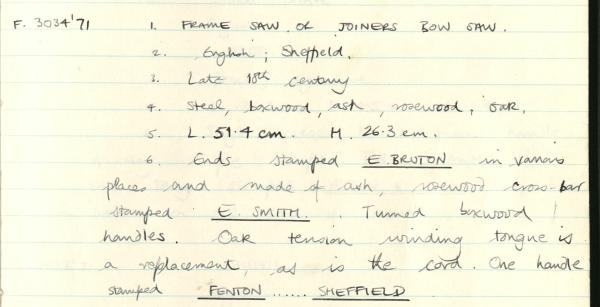 F. 3034'71 1. FRAME SAW OR JOINERS BOW SAW.
2. English; Sheffield.
3. Late 18th century
4. Steel, boxwood, ash, rosewood, oak.
5. L. 51.4 cm. H. 26.3 cm.
6. Ends stamped E. BRUTON in various
places and made of ash, rosewood cross-bar
stamped E. SMITH. Turned boxwood
handles. Oak tension winding tongue is
a replacement, as is the cord. One handle
stamped FENTON ...... SHEFFIELD.